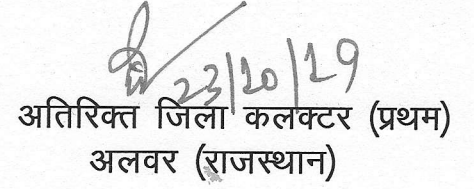 23/10/19
अतिरिक्त जिला कलक्टर (प्रथम)
अलवर (राजस्थान)